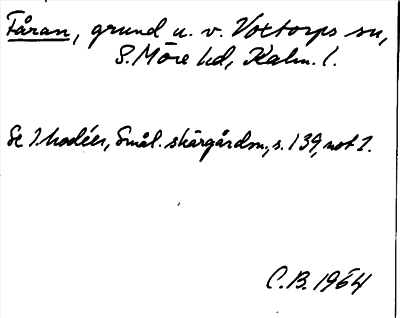 Fåran, grund u. v. Voxtorps sn,
S. Möre hd, Kalm. l.
Se Modéer, Smål. skärgårdsn, s. 139, not 1.
C.B. 1964